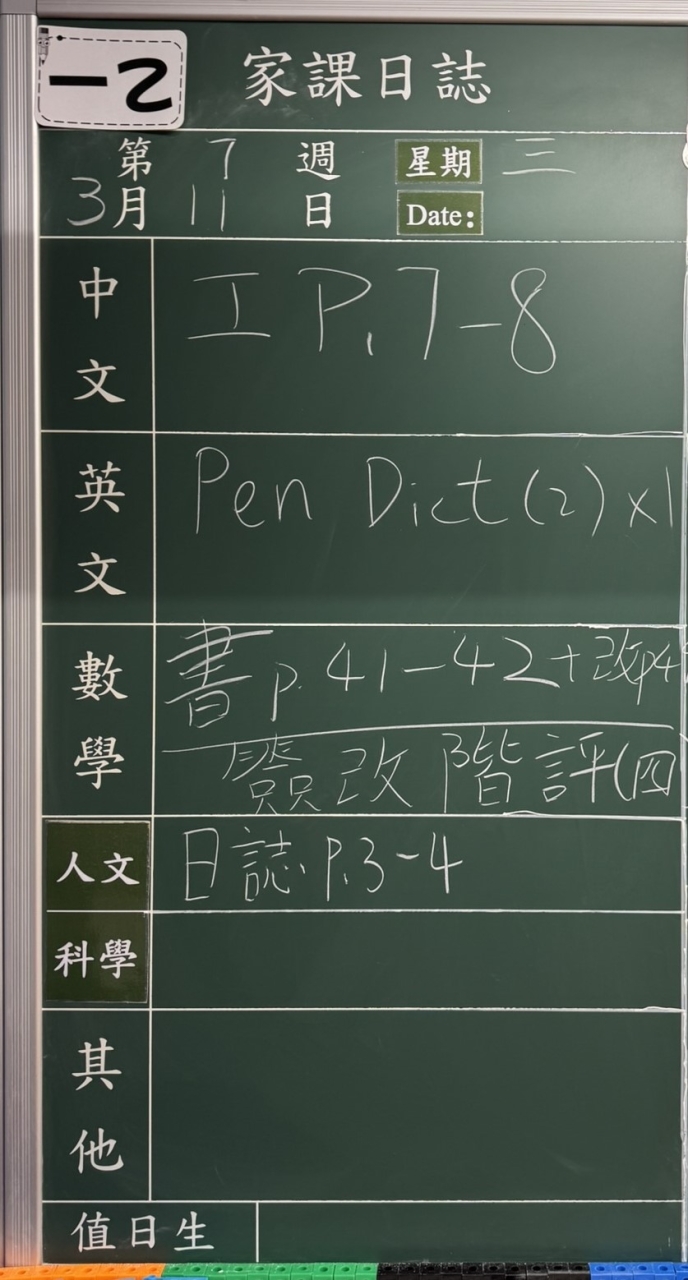 家課日誌
第 7 週 星期 三
3月 11 日 Date:
中文 工 P.7-8
英文 Pen Dict (2) x1
數學 書 p.41-42+改p4
簽改階評(四
人文 日誌 P.3-4
科學
其他
值日生